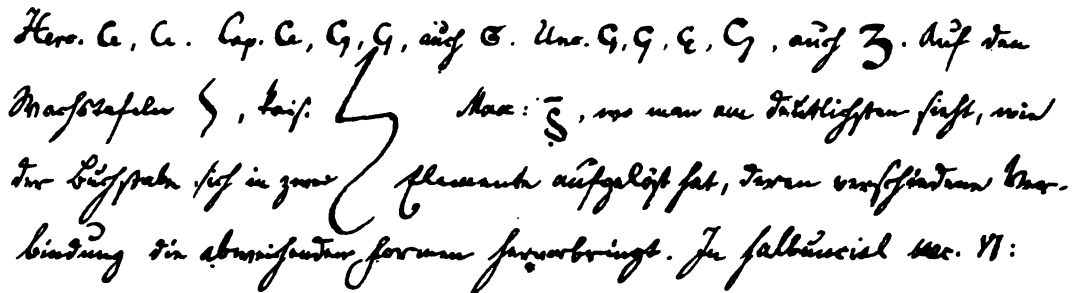 Herc. G, G. Cap. G, G, G, auch G. Unc. G, G, G, G, auch Ʒ. Auf den
Wachstafeln, kais. Max:, wo man am deutlichsten sieht, wie
der Buchstabe sich in zwei Elemente aufgelöst hat, deren verschiedene Ver-
bindung die abweichenden Formen hervorbringt. In halbuncial saec. VI: